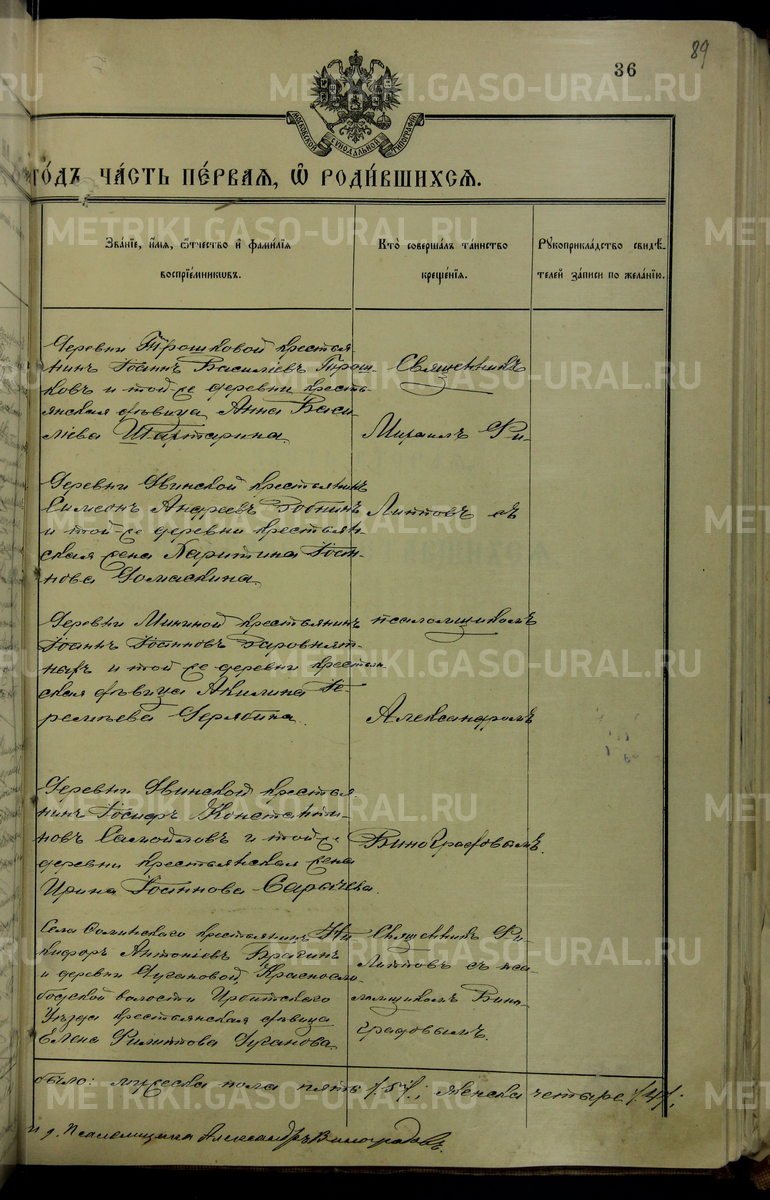 89
36
МОСКОВСКОЙ СѴНОДАЛЬНОЙ ТИПОГРАФІИ
METRIKI.GASO-URAL.RU
го́дъ ча́сть пе́рвая, ѡ҆ роди́вшихся.
Зва́нїе, и҆́мя, ѻ҆́тчество и҆ фами́лїя
воспрїе́мникѡвъ.
Кто̀ соверша́лъ та́инство
креще́нїя.
Рꙋкоприкла́дство свидѣ́-
телей за́писи по жела́нїю.
Деревни Трошковой крестья
нинъ Іоаннъ Василіевъ Трош-
ковъ и той же деревни кресть
янская дѣвица Анна Васи
ліева Шартарина.
Священникъ
Михаилъ Фи-
Деревни Двинской крестьянинъ
Симеонъ Андреевъ
и той-же деревни крестьян
ская жена Харитина Іоан-
нова Домаскина.
липповъ съ
Деревни Мининой крестьянинъ
Іоаннъ Іоанновъ
и той же деревни крестьян
ская дѣвица Акилина Те-
рентьева Дерябина.
псаломщикомъ
Александромъ
Деревни Двинской крестья
нинъ Іосифъ Константи-
новъ Самойловъ и той-же
деревни крестьянская жена
Ирина Іоаннова Сарычева.
Виноградовымъ.
Села крестьянинъ Ни
кифоръ Антоніевъ Брагинъ
и деревни Дугановой, Красносло
бодской волости Ирбитскаго
Уѣзда крестьянская дѣвица
Елена Филиппова Дуганова.
Священникъ Фи-
липповъ съ пса-
ломщикомъ Вино-
градовымъ.
было: мужеска пола пять /5/; женска четыре /4/;
и. д. Псаломщика Александръ Виноградовъ.